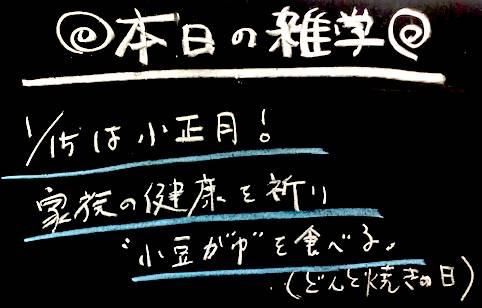 本日の雑学
1/15は小正月!
家族の健康を祈り
"小豆がゆ"を食べる。
(どんど焼きの日)